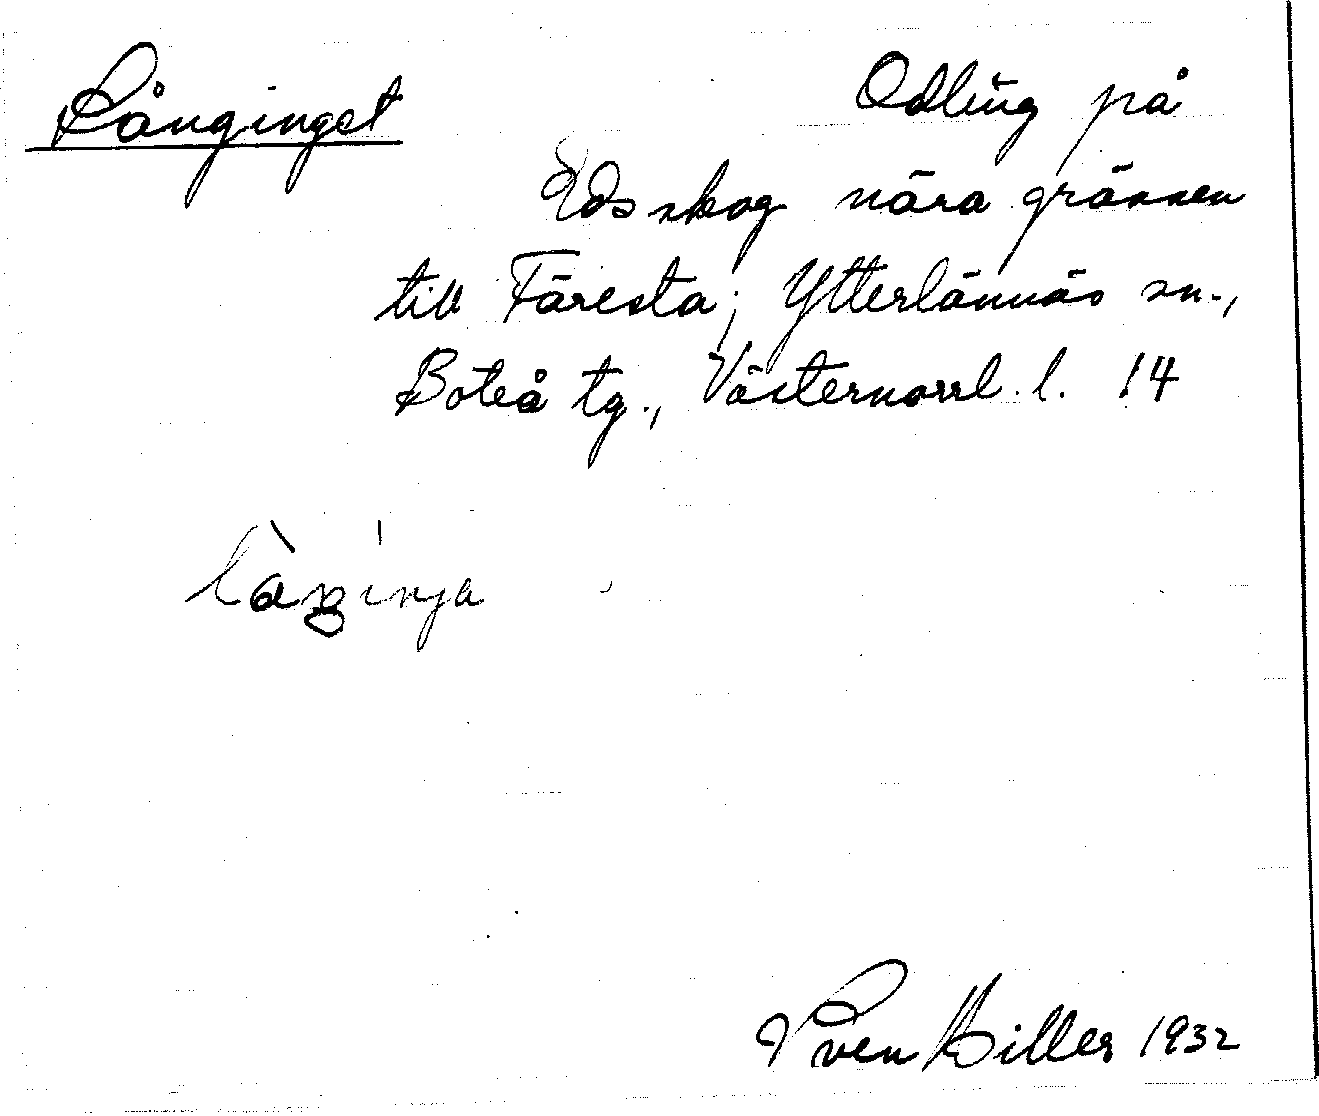 Långinget
Odling på
Eds skog nära gränsen
till Färesta; Ytterlännäs sn.,
Boteå tg., Västernorrl. l. 14
Sven Hiller 1932